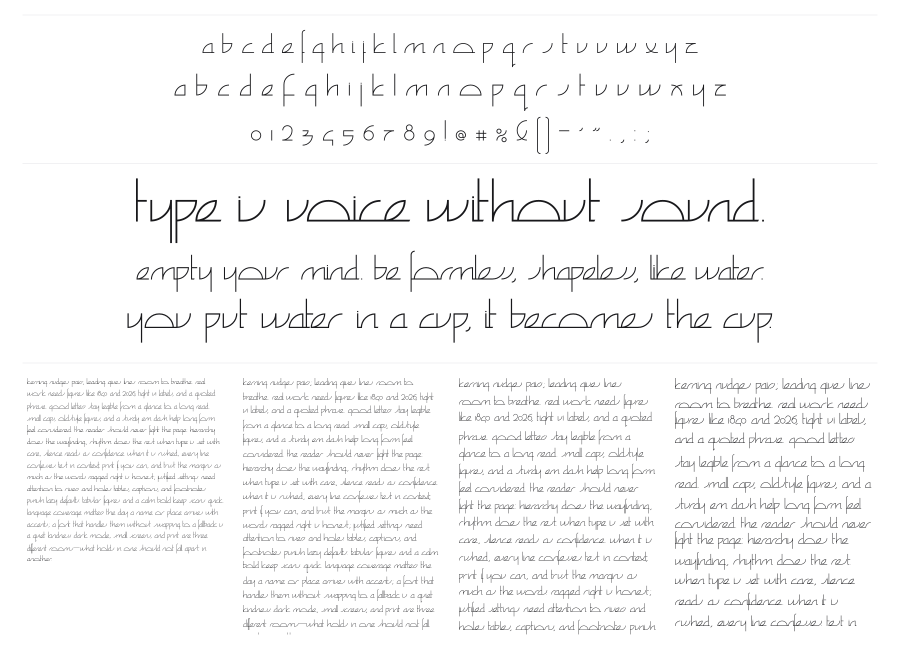 a b c d e f g h i j k l m n o p q r s t u v w x y z
a b c d e f g h i j k l m n o p q r s t u v w x y z
0 1 2 3 4 5 6 7 8 9 ! @ # % & ( ) – ' " . , : ;
type is voice without sound.
empty your mind. be formless, shapeless, like water.
you put water in a cup, it becomes the cup.
kerning nudges pairs, leading gives lines room to breathe. real
work needs figures like 1890 and 2026, tight ui labels, and a quoted
phrase. good letters stay legible from a glance to a long read.
small caps, old-style figures, and a sturdy em dash help long form
feel considered. the reader should never fight the page. hierarchy
does the wayfinding, rhythm does the rest. when type is set with
care, silence reads as confidence. when it is rushed, every line
confesses. test in context. print if you can, and trust the margin as
much as the words. ragged right is honest, justified settings need
attention to rivers and holes. tables, captions, and footnotes
punish lazy defaults. tabular figures and a calm bold keep scans quick.
language coverage matters the day a name or place arrives with
accents, a font that handles them without swapping to a fallback is
a quiet kindness. dark mode, small screens, and print are three
different rooms—what holds in one should not fall apart in
another.
kerning nudges pairs, leading gives lines room to
breathe. real work needs figures like 1890 and 2026, tight
ui labels, and a quoted phrase. good letters stay legible
from a glance to a long read. small caps, old-style
figures, and a sturdy em dash help long form feel
considered. the reader should never fight the page.
hierarchy does the wayfinding, rhythm does the rest.
when type is set with care, silence reads as confidence.
when it is rushed, every line confesses. test in context.
print if you can, and trust the margin as much as the
words. ragged right is honest, justified settings need
attention to rivers and holes. tables, captions, and
footnotes punish lazy defaults. tabular figures and a calm
bold keep scans quick. language coverage matters the
day a name or place arrives with accents, a font that
handles them without swapping to a fallback is a quiet
kindness. dark mode, small screens, and print are three
different rooms—what holds in one should not fall
kerning nudges pairs, leading gives lines
room to breathe. real work needs figures
like 1890 and 2026, tight ui labels, and a quoted
phrase. good letters stay legible from a
glance to a long read. small caps, old-style
figures, and a sturdy em dash help long form
feel considered. the reader should never
fight the page. hierarchy does the wayfinding,
rhythm does the rest. when type is set with
care, silence reads as confidence. when it is
rushed, every line confesses. test in context.
print if you can, and trust the margin as
much as the words. ragged right is honest,
justified settings need attention to rivers and
holes. tables, captions, and footnotes punish
kerning nudges pairs, leading gives lines
room to breathe. real work needs
figures like 1890 and 2026, tight ui labels,
and a quoted phrase. good letters
stay legible from a glance to a long
read. small caps, old-style figures, and a
sturdy em dash help long form feel
considered. the reader should never
fight the page. hierarchy does the
wayfinding, rhythm does the rest.
when type is set with care, silence
reads as confidence. when it is
rushed, every line confesses. test in